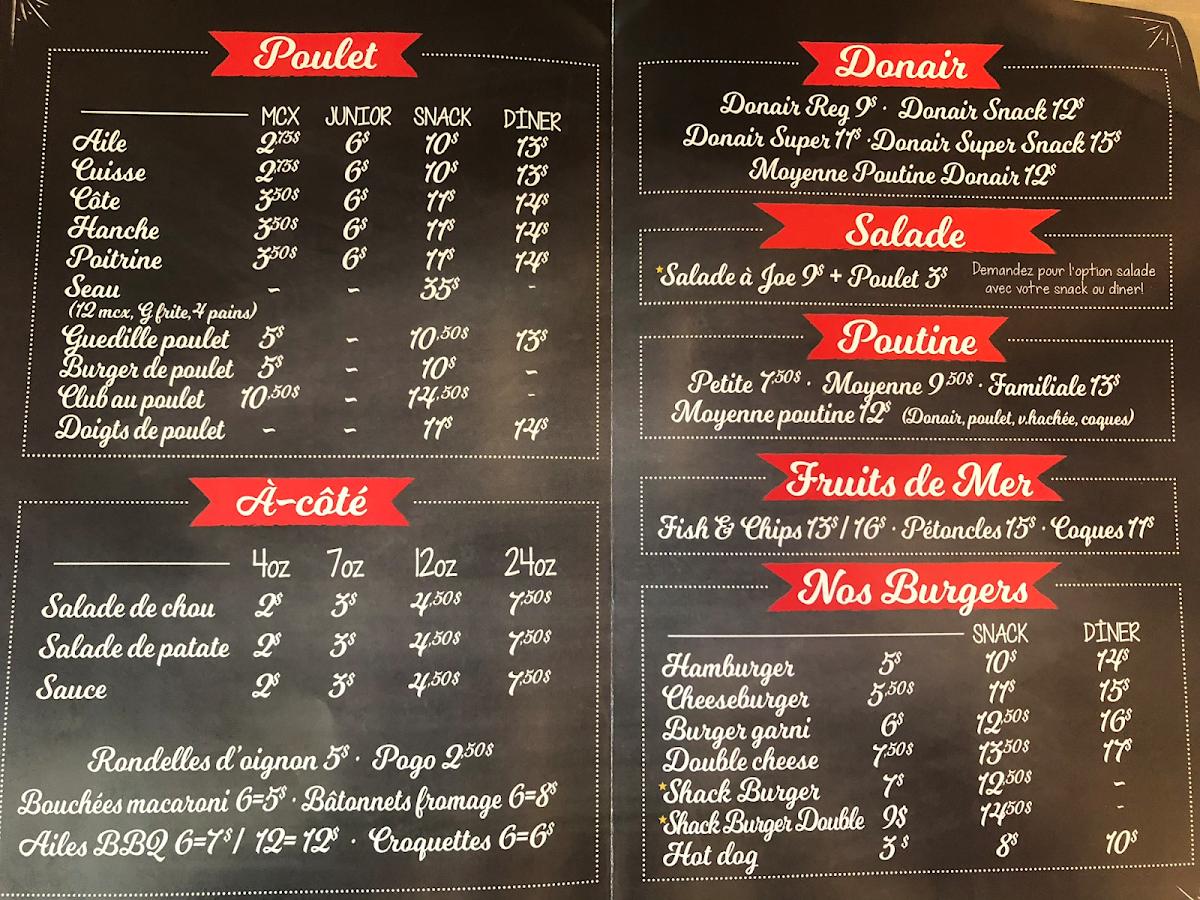 Poulet
MCX JUNIOR SNACK DÎNER
Aile 2.75$ 6$ 10$ 13$
Cuisse 2.75$ 6$ 10$ 13$
Côte 3.50$ 6$ 11$ 14$
Hanche 3.50$ 6$ 11$ 14$
Poitrine 3.50$ 6$ 11$ 14$
Seau - - 35$ -
(12 mcx, G frite, 4 pains)
Guedille poulet 5$ - 10.50$ 13$
Burger de poulet 5$ - 10$ -
Club au poulet 10.50$ - 14.50$ -
Doigts de poulet - - 11$ 14$
À-côté
4oz 7oz 12oz 24oz
Salade de chou 2$ 3$ 4.50$ 7.50$
Salade de patate 2$ 3$ 4.50$ 7.50$
Sauce 2$ 3$ 4.50$ 7.50$
Rondelles d'oignon 5$ · Pogo 2.50$
Bouchées macaroni 6=5$ · Bâtonnets fromage 6=8$
Ailes BBQ 6=7$ / 12=12$ · Croquettes 6=6$
Donair
Donair Reg 9$ · Donair Snack 12$
Donair Super 11$ · Donair Super Snack 15$
Moyenne Poutine Donair 12$
Salade
*Salade à Joe 9$ + Poulet 3$
Demandez pour l'option salade
avec votre snack ou diner!
Poutine
Petite 7.50$ · Moyenne 9.50$ · Familiale 13$
Moyenne poutine 12$ (Donair, poulet, v.hachée, coques)
Fruits de Mer
Fish & Chips 13$ / 16$ · Pétoncles 15$ · Coques 11$
Nos Burgers
SNACK DÎNER
Hamburger 5$ 10$ 14$
Cheeseburger 5.50$ 11$ 15$
Burger garni 6$ 12.50$ 16$
Double cheese 7.50$ 13.50$ 17$
*Shack Burger 7$ 12.50$ -
*Shack Burger Double 9$ 14.50$ -
Hot dog 3$ 8$ 10$